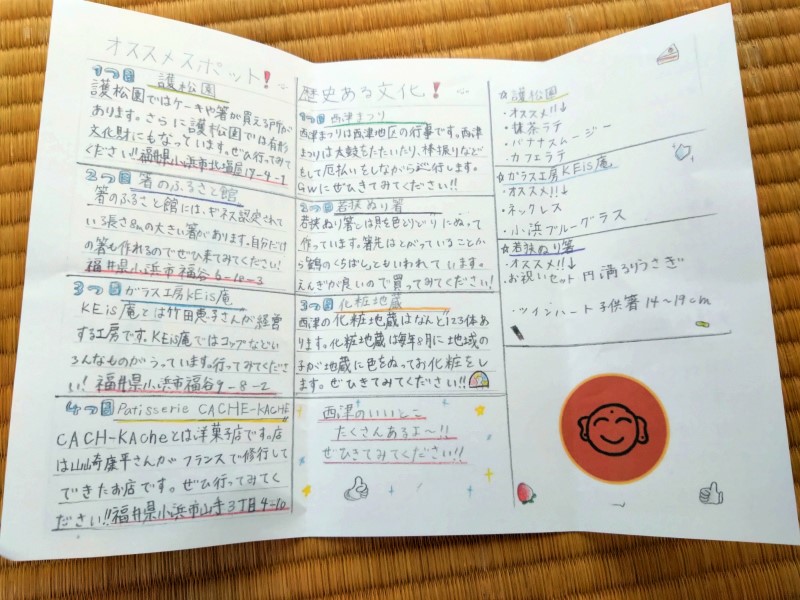 オススメスポット!
1つ目 護松園
護松園ではケーキや箸が買える所が
あります。さらに護松園では有形
文化財にもなっています。ぜひ行ってみて
ください!!福井県小浜市北塩屋17-4-1
2つ目 箸のふるさと館
箸のふるさと館には、ギネス認定されて
いる長さ8mの大きい箸があります。自分だけ
の箸も作れるのでぜひ来てみてください!
福井県小浜市福谷8-1-3
3つ目 ガラス工房KEiS庵
KEiS庵とは竹田恵子さんが経営
する工房です。KEiS庵ではコップなどい
ろんなものがうっています。行ってみてくださ
い! 福井県小浜市福谷9-8-2
4つ目 Patisserie CACHE-KACHE
CACH-KAcheとは洋菓子店です。店
は山崎康平さんがフランスで修行して
できたお店です。ぜひ行ってみてく
ださい!!福井県小浜市山手3丁目4-10
歴史ある文化!
1つ目 西津まつり
西津まつりは西津地区の行事です。西津
まつりは太鼓をたたいたり、棒振りなど
もして厄払いをしながら行します。
GWにぜひきてみてください!!
2つ目 若狭ぬり箸
若狭ぬり箸とは貝を色とりどりにぬって
作っています。箸先はとがっていることか
ら鶴のくちばしともいわれています。
えんぎが良いので買ってみてください!
3つ目 化粧地蔵
西津の化粧地蔵はなんと123体あ
ります。化粧地蔵は毎年8月に地域の
子が地蔵に色をぬってお化粧をし
ます。ぜひきてみてください!!
西津のいいとこ
たくさんあるよ〜!!
ぜひきてみてください!!
☆護松園
・オススメ!!↓
・抹茶ラテ
・バナナスムージー
・カフェラテ
☆ガラス工房KEiS庵
・オススメ!!↓
・ネックレス
・小浜ブルーグラス
☆若狭ぬり箸
・オススメ!!↓
・お祝いセット 円満うさぎ
・ツインハート子供箸14〜19cm